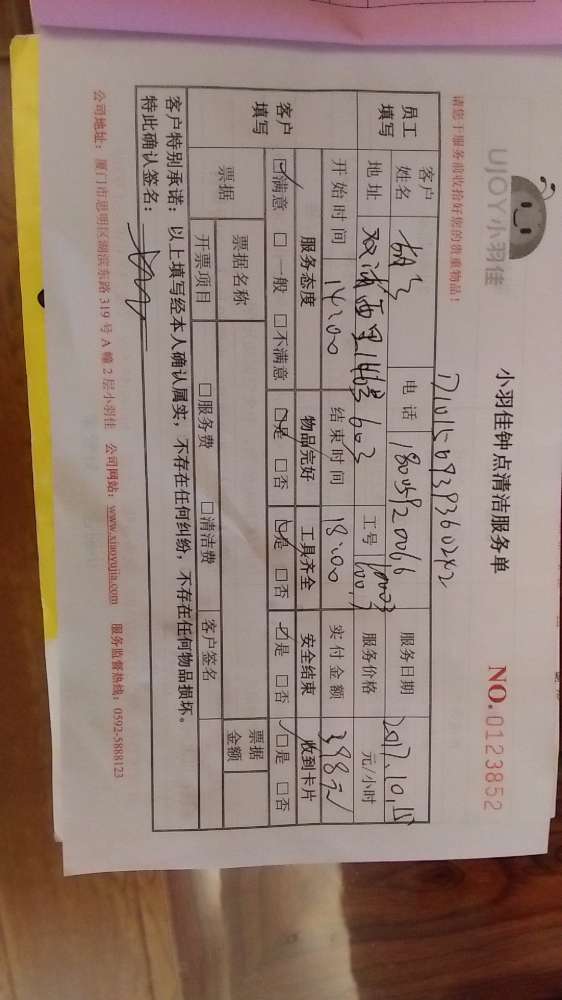 UJOY小羽佳
小羽佳钟点清洁服务单
NO.0123852
请您于服务前收拾好您的贵重物品！
员工填写
客户姓名
电话 1805920066
服务日期 2017.10.
地址
工号
服务价格 元/小时
开始时间 14:00
结束时间 18:00
实付金额 398元
客户填写
服务态度 物品完好 工具齐全 安全结束 收到卡片
☑满意 □一般 □不满意 ☑是 □否 ☑是 □否 ☑是 □否 ☑是 □否
票据
票据名称
客户签名
票据金额
开票项目 □服务费 □清洁费
客户特别承诺：以上填写经本人确认属实，不存在任何纠纷，不存在任何物品损坏。
特此确认签名：
公司地址：厦门市思明区湖滨东路319号A幢2层小羽佳 公司网站：www.xiaoyujia.com 服务监督热线：0592-5888123